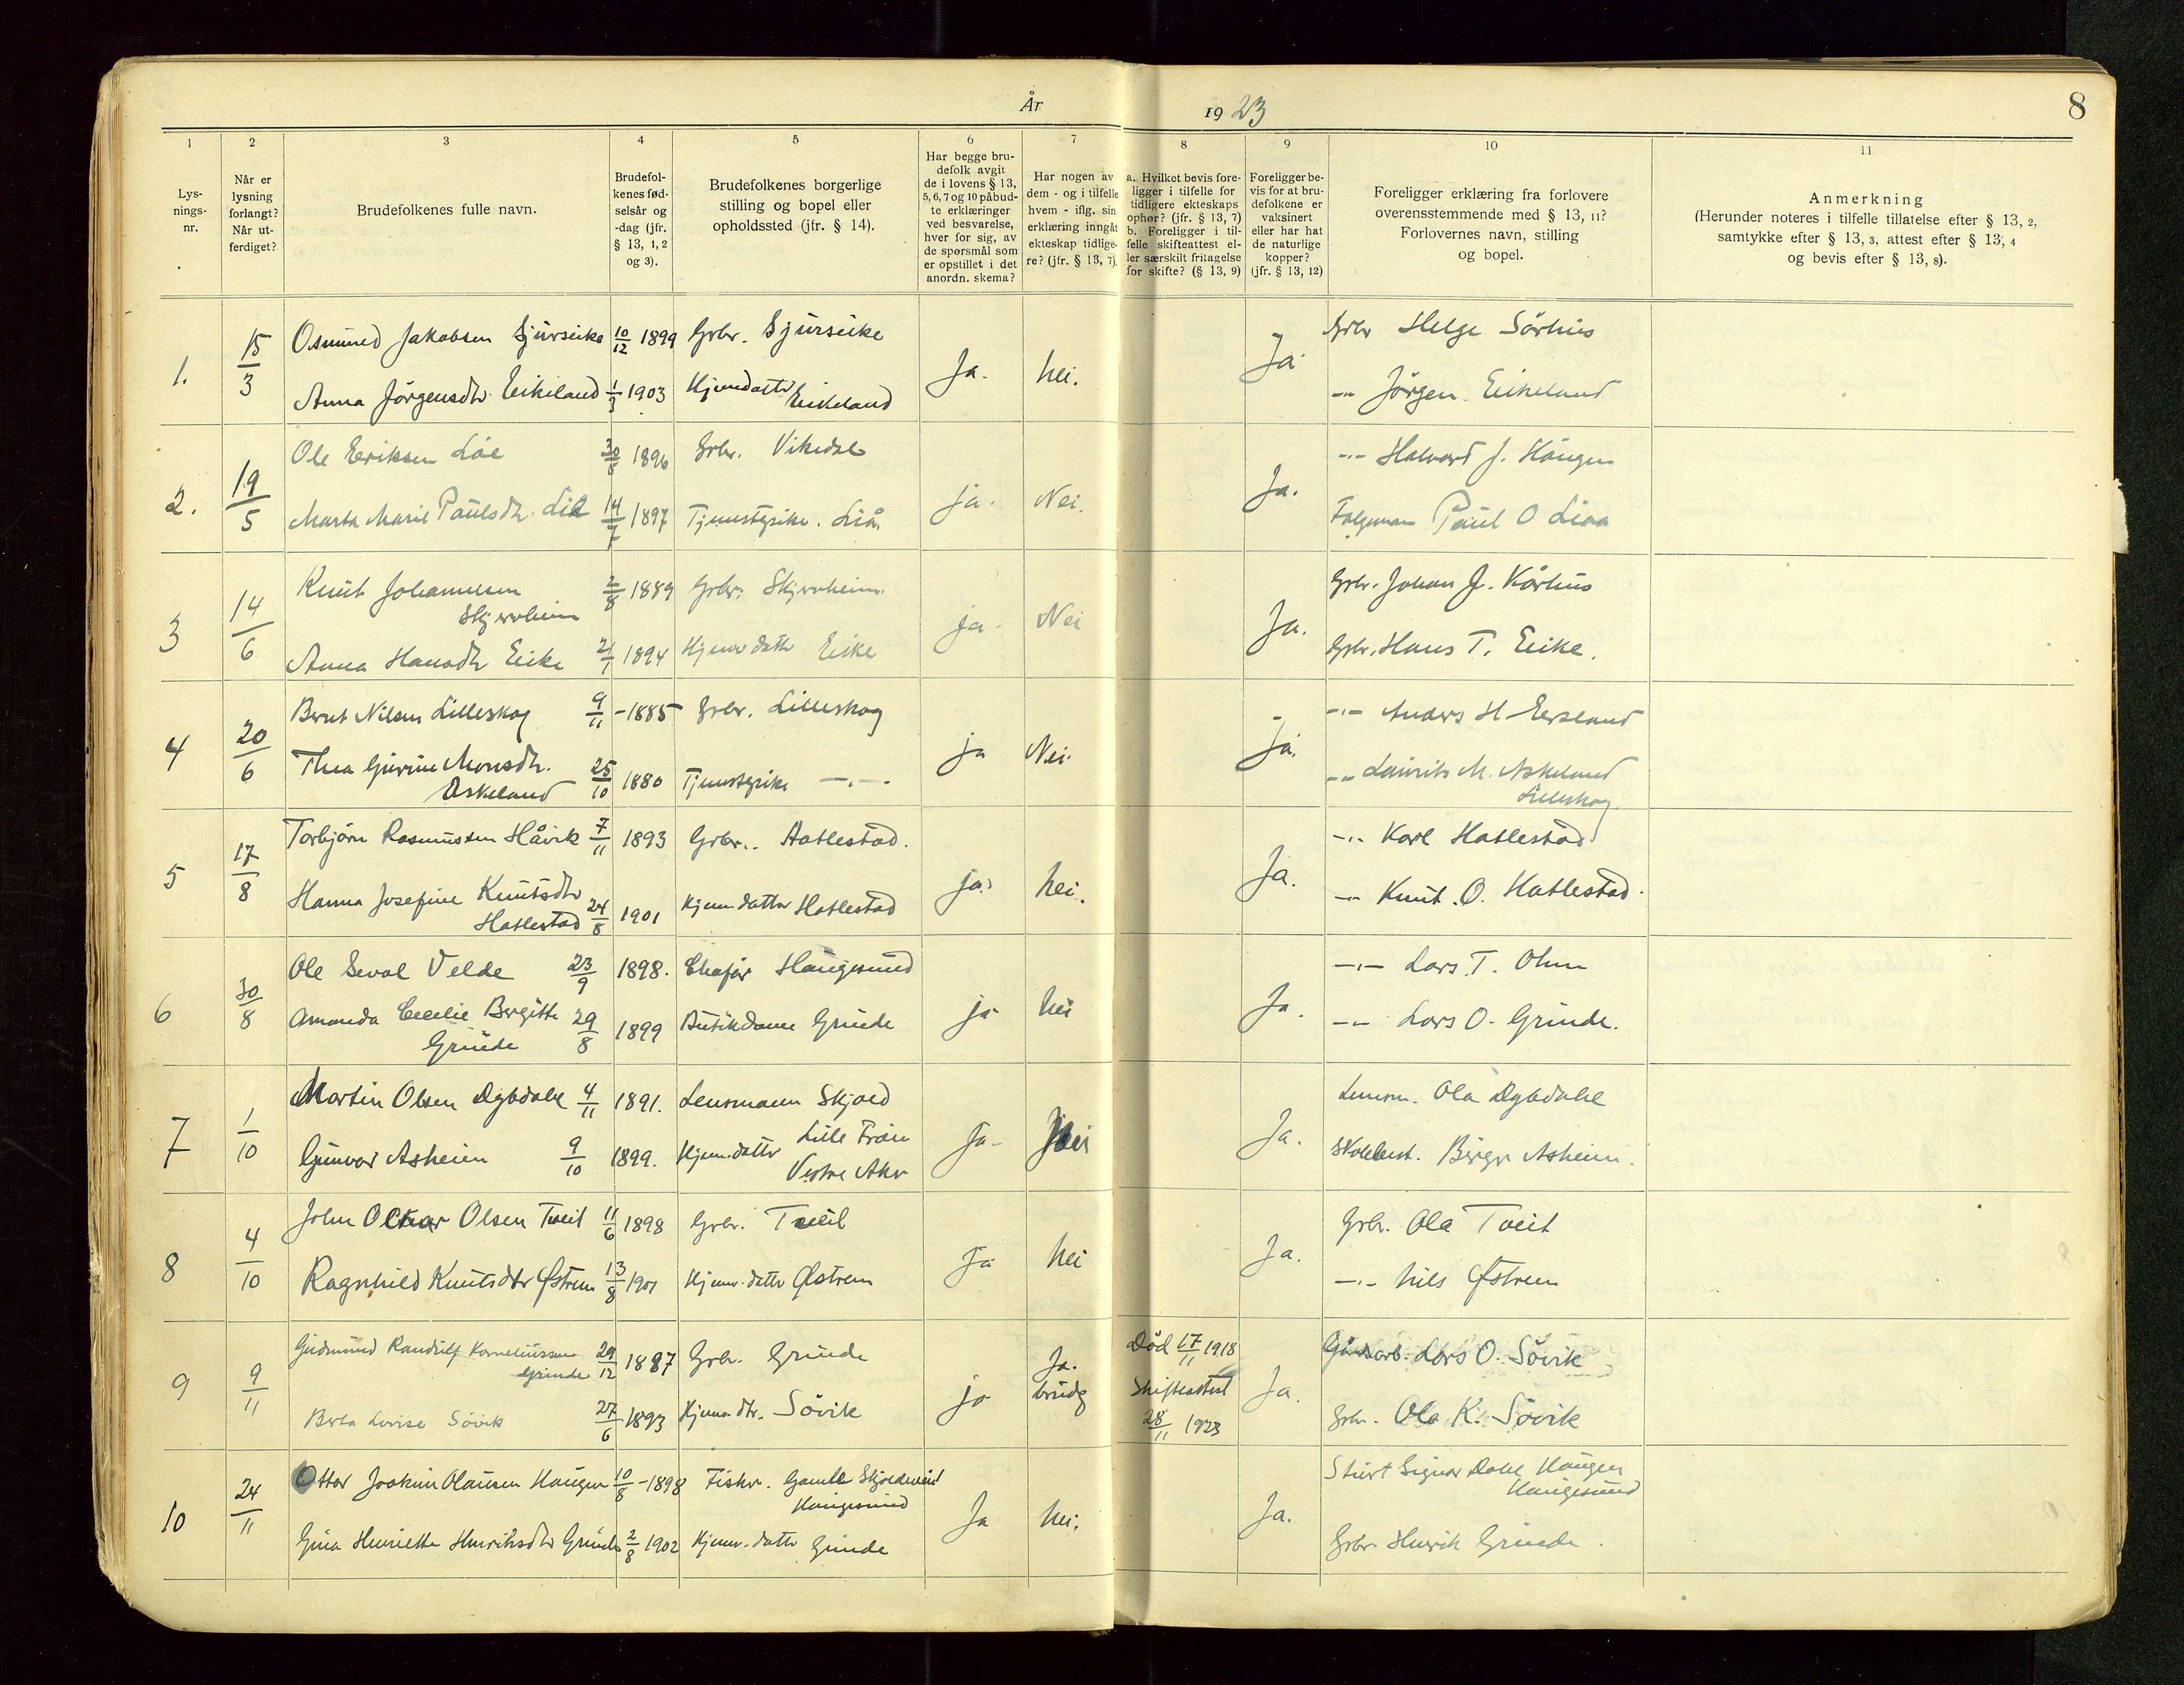 År 1923
8
1 2 3 4 5 6 7 8 9 10 11
Lys-
nings-
nr.
Når er
lysning
forlangt?
Når ut-
ferdiget?
Brudefolkenes fulle navn.
Brudefol-
kenes fød-
selsår og
-dag (jfr.
§ 13, 1, 2
og 3).
Brudefolkenes borgerlige
stilling og bopel eller
opholdssted (jfr. § 14).
Har begge bru-
defolk avgit
de i lovens § 13,
5, 6, 7 og 10 påbud-
te erklæringer
ved besvarelse,
hver for sig, av
de spørsmål som
er opstillet i det
anordn. skema?
Har nogen av
dem - og i tilfelle
hvem - iflg. sin
erklæring inngåt
ekteskap tidlige-
re? (jfr. § 13, 7).
a. Hvilket bevis fore-
ligger i tilfelle for
tidligere ekteskaps
ophør? (jfr. § 13, 7)
b. Foreligger i til-
felle skifteattest el-
ler særskilt fritagelse
for skifte? (§ 13, 9)
Foreligger be-
vis for at bru-
defolkene er
vaksinert
eller har hat
de naturlige
kopper?
(jfr. § 13, 12)
Foreligger erklæring fra forlovere
overensstemmende med § 13, 11?
Forlovernes navn, stilling
og bopel.
Anmerkning
(Herunder noteres i tilfelle tillatelse efter § 13, 2,
samtykke efter § 13, 3, attest efter § 13, 4
og bevis efter § 13, 8).
1. 15/3 Osmund Jakobsen Sjurseike 10/12 1899 Grbr. Sjurseike Ja. Nei. Ja Grbr Helge Sörhus
Anna Jörgensdtr Eikeland 1/3 1903 Hjemdattr Eikeland -"- Jörgen Eikeland
2. 19/5 Ole Eriksen Löe 1896 Grbr. Vikedal ja. Nei. Ja. -"- Halvard J. Haugen
Marta Marie Paulsdtr. Liå 14/7 1897 Tjenestepike. Liå. Folgemann Paul O Liaa
3 14/6 Knut Johannesen 2/8 1889 Grbr. Skjervheim ja. Nei Ja. Grbr. Johan J. Kårhus
Skjervheim
Anna Hansdtr Eike 1894 Hjemv datter Eike Grbr. Hans T. Eike.
4 20/6 Bernt Nilsen Lilleskog 9/11 - 1885 Grbr. Lilleskog ja Nei. ja. -"- Anders H
Thea Gurine Monsdtr. 25/10 1880 Tjenestepike -"- -"- Laurits M. Askeland
Askeland Lilleskog
5 17/8 Torbjörn Rasmussen Håvik 7/11 1893 Grbr. Hatlestad. ja. Nei. Ja. -"- Karl Hatlestad
Hanna Josefine Knutsdtr 24/8 1901 Hjem.datter Hatlestad -"- Knut. O. Hatlestad.
Hatlestad
6 30/8 Ole Seval Velde 23/9 1898. Chafør Haugesund ja Nei Ja. -"- Lars. T. Ohm
Amanda Cecelie Bergitte 29/8 1899 Butikdame Grinde -"- Lars O. Grinde.
Grinde
7 1/10 Martin Olsen Dybdahl 4/11 1891. Lensmann Skjold Ja. Nei Ja. Lensm. Ola Dybdahl
Gunvor Asheim 9/10 1899. Hjem.dattr Lille Frøen Birger Asheim.
Vestre Aker
8 4/10 John Oskar Olsen Tveit 11/6 1898 Grbr. Tveit ja Nei Ja. Grbr. Ola Tveit
Ragnhild Knutsdtr Østrem 13/8 1901 Hjemv. dattr Østrem -"- Nils Østrem
9 9/11 Gudmund Randulf Korneliussen 29/12 1887 Grbr. Grinde ja Ja. brudg Död 17/11 1918 Ja. Gårdsarb. Lars O. Sövik
Grinde
Berta Lovise Sövik 27/6 1893 Hjemv dtr. Sövik Skifteattest 28/11 1923 Grbr. Ola K. Sövik
10 24/11 Ottar Joakim Olausen Haugen 10/8 - 1898 Fisker. Gamle Skjoldevei Ja Nei. Ja. Sigvar Dahl Haugen
Haugesund Haugesund
Gina Henriette Henriksdtr Grinde 2/8 1902 Hjemv. dattr Grinde Grbr Henrik Grinde.